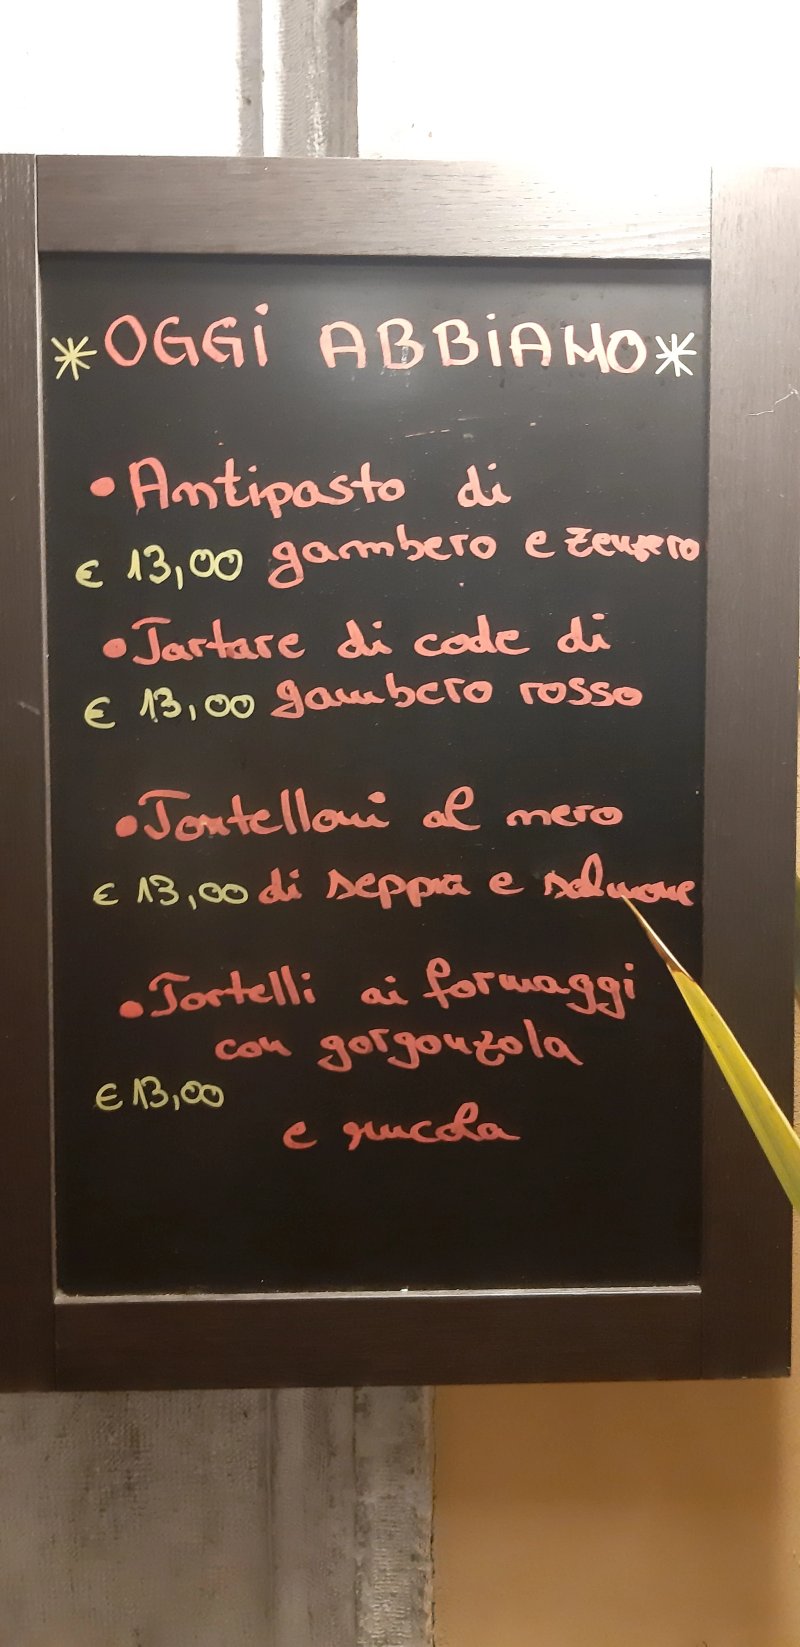 *OGGi ABBiAMO*
•Antipasto di
€ 13,00 gambero e zenzero
•Tartare di code di
€ 13,00 gambero rosso
•Tortelloni al nero
€ 13,00 di seppia e salmone
•Tortelli ai formaggi
con gorgonzola
€ 13,00
e rucola